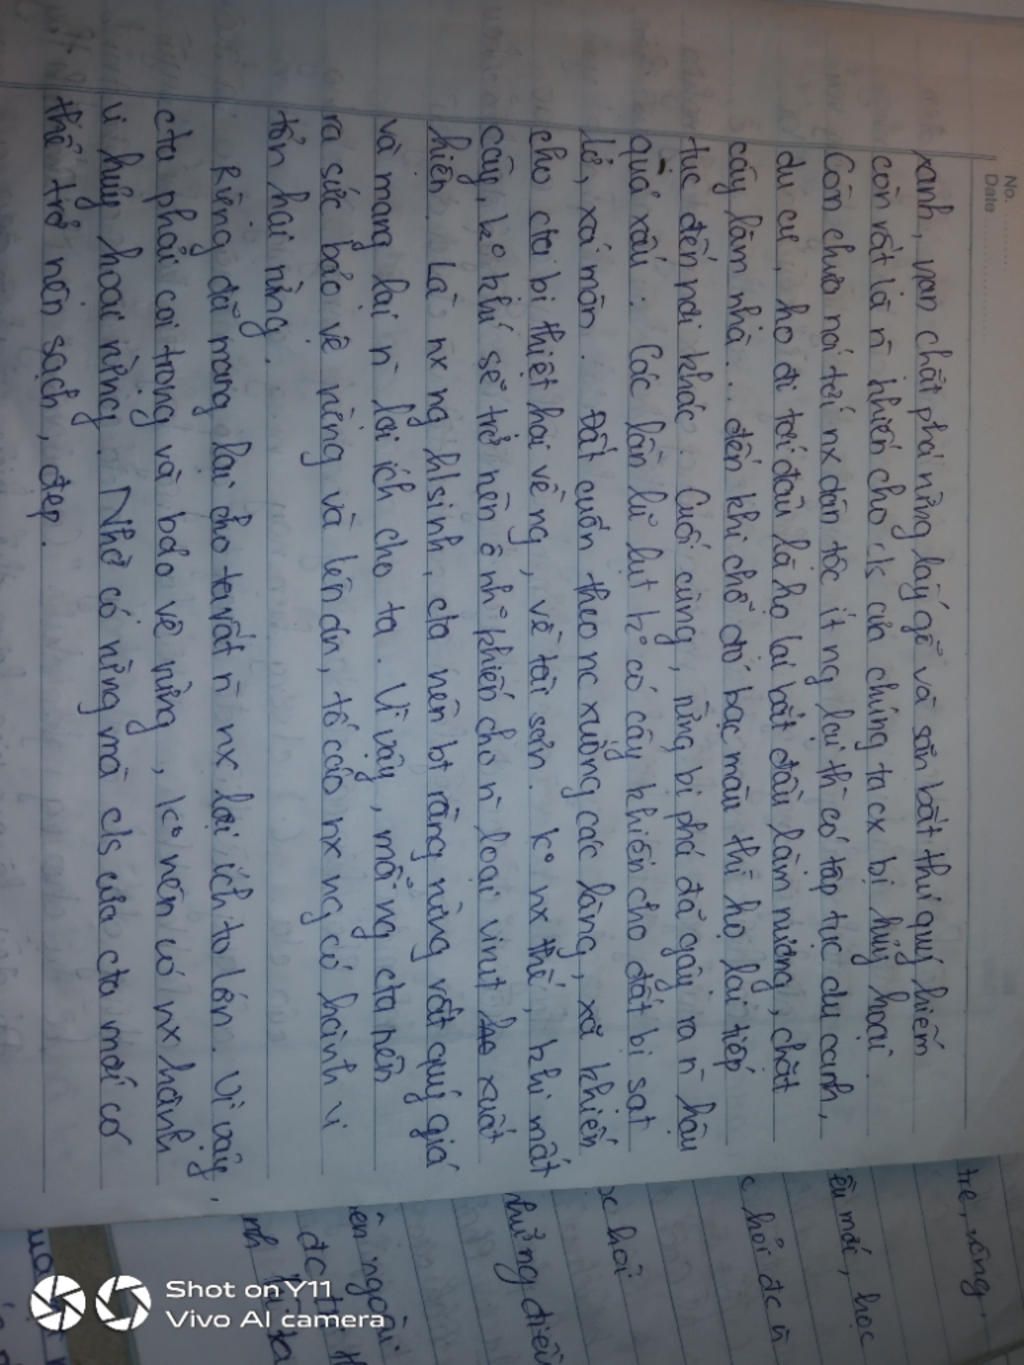 No. ..........
Date ..........
xanh, vạn chặt phá rừng lấy gỗ và săn bắt thú quý hiếm
còn rất là n̄ khiến cho c/s của chúng ta cx bị hủy hoại.
Còn chưa nói tới nx dân tộc ít ng lại thì có tập tục du canh,
du cư, họ đi tới đâu là họ lại bắt đầu làm nương, chặt
cây làm nhà... đến khi chỗ đó bạc màu thì họ lại tiếp
tục đến nơi khác. Cuối cùng, rừng bị phá đã gây ra n̄ hậu
quả xấu: Các lần lũ lụt k° có cây khiến cho đất bị sạt
lở, xói mòn. Đất cuốn theo nc xuống các làng, xã khiến
cho cta bị thiệt hại về ng, về tài sản. K° nx thế, khi mất
cây, k° khí sẽ trở nên ô nh° khiến cho n̄ loại virut xuất
hiện. Là nx ng h/sinh, cta nên bt rằng rừng rất quý giá
và mang lại n̄ lợi ích cho ta. Vì vậy, mỗi ng cta nên
ra sức bảo vệ rừng và lên án, tố cáo nx ng có hành vi
tổn hại rừng.
Rừng đã mang lại cho ta rất n̄ nx lợi ích to lớn. Vì vậy,
cta phải coi trọng và bảo vệ rừng, k° nên có nx hành
vi hủy hoại rừng. Nhờ có rừng mà c/s của cta mới có
thể trở nên sạch, đẹp.
tre, sông.
mới, học
hỏi đc n̄
học hỏi
những điều
ngoài
đc
Shot on Y11
Vivo AI camera